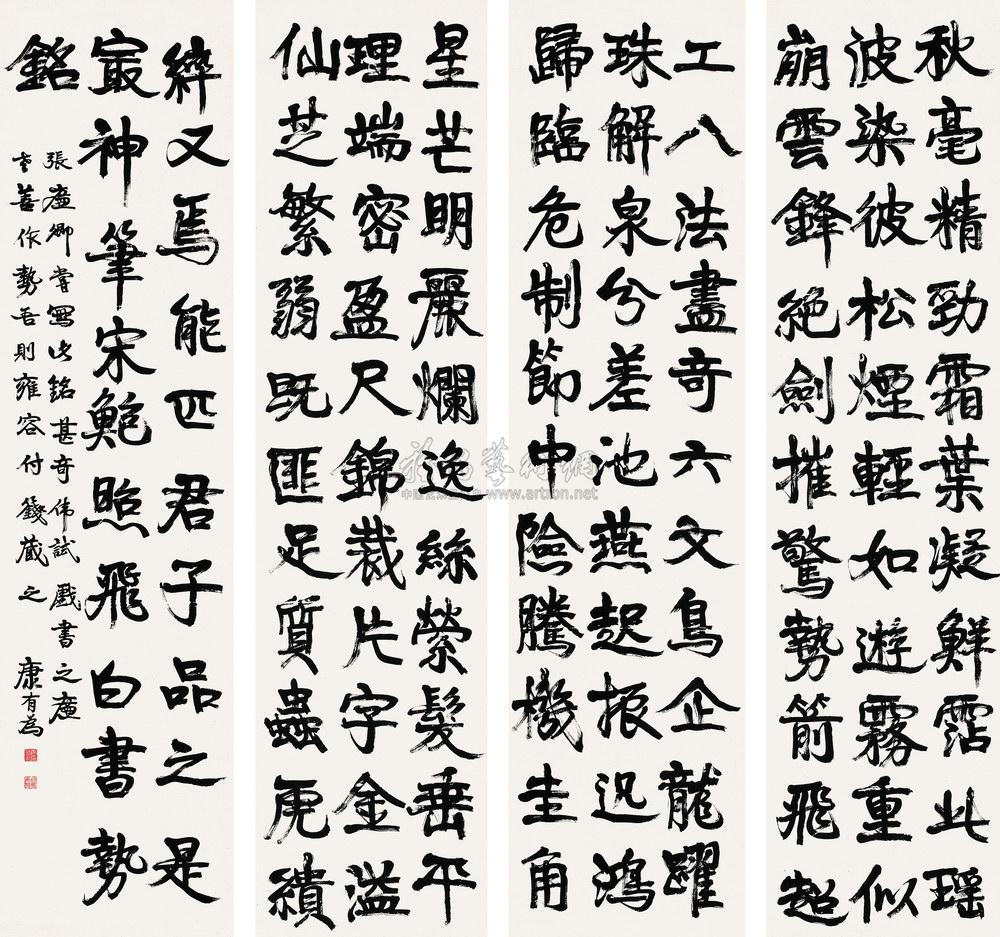 秋毫精勁霜葉凝鮮霑此瑤
波染彼松煙輕如遊霧重似
崩雲鋒絕劍摧驚勢箭飛超
工八法盡奇六文鳥企龍躍
珠解泉分差池燕起振迅鴻
歸臨危制節中險騰機圭角
星芒明麗爛逸絲縈髮垂平
理端密盈尺錦裁片字金溢
仙芝繁弱既匪足質蟲虎繢
綷又焉能匹君子品之是
最神筆宋鮑照飛白書勢
銘
張廉卿嘗寫此銘甚奇偉試戲書之廉
老善作勢吾則雍容付籛藏之 康有為
www.artron.net